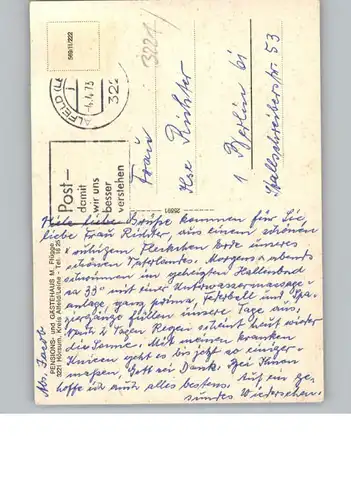 569/11/222
3221
ALFELD (LE
-4.4.73
322
Post-
damit
wir uns
besser
verstehen
Frau
Ilse Richter
1 Berlin 61
Wallstraße 53
25891
PENSIONS- und GÄSTEHAUS M. Flügge
3221 Hörsum, Kreis Alfeld/Leine - Tel. 16 25
Abs. Jacob
Viele liebe Grüße kommen für Sie,
liebe Frau Richter, aus einem schönen
ruhigen Fleckchen Erde unseres
schönen Vaterlandes. Morgens + abends
schwimmen im geheizten Hallenbad
ca 33° mit einer Unterwassermassage-
anlage, ganz prima, Federball und Spa-
ziergänge füllen unsere Tage aus,
Nach 2 Tagen Regen scheint heut wieder
die Sonne. Mit meinen kranken
Knieen geht es bis jetzt so einiger-
maßen, Gott sei Dank. Bei Ihnen
hoffe ich auch alles bestens. Auf ein ge-
sundes Wiedersehen.